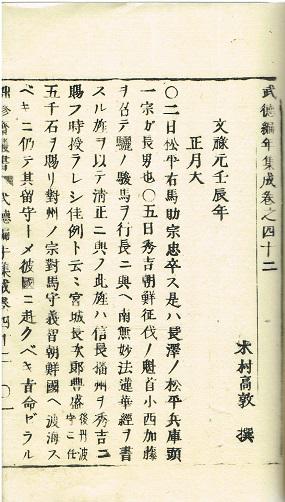 武徳編年集成巻之四十二
木村高敦 撰
文祿元壬辰年
正月大
〇二日松平右馬助宗忠卒ス是ハ長澤ノ松平兵庫頭
一宗ガ長男也〇五日秀吉朝鮮征伐ノ魁首小西加藤
ヲ召テ驪ノ駿馬ヲ行長ニ與ヘ南無妙法蓮華經ヲ書
スル旌ヲ以テ清正ニ與フ此旌ハ信長播州ヲ秀吉ニ
賜フ時授ラレシ佳例ト云ミ宮城長次郎豊盛後丹波守ニ任
五千石ヲ賜リ對州ノ宗對馬守義智朝鮮國ヘ渡海ス
ベキニ仍テ其留守トメ彼國ニ赴クベキ㫖命ゼラル